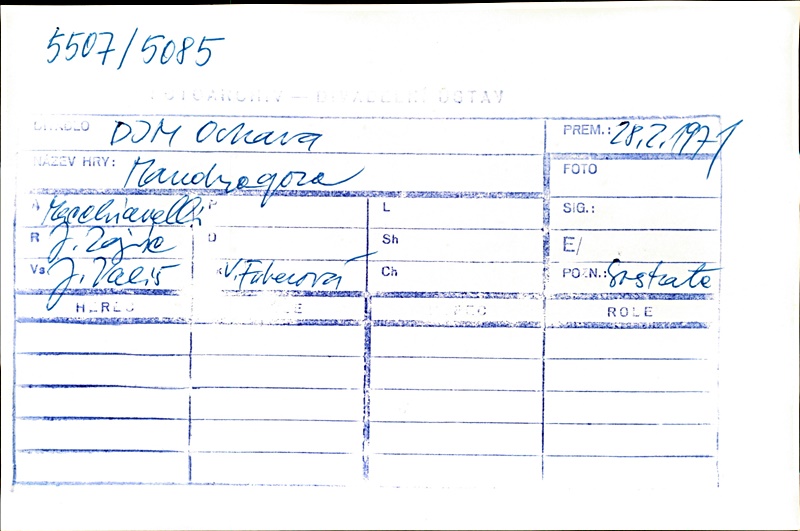 5507/5085
FOTOARCHIV – DIVADELNÍ ÚSTAV
DIVADLO DJM Ostrava PREM.: 28.2.1971
NÁZEV HRY: Mandragora FOTO
A Macchiavelli P L SIG.:
R J. Zajíc D Sh E/
Vs J. Vališ K V. Fáberová Ch POZN.:
HEREC ROLE HEREC ROLE